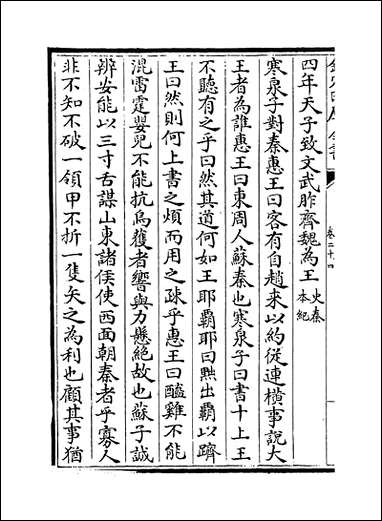 欽定四庫全書
卷二十四
四年天子致文武胙齊魏為王史秦本紀
寒泉子對秦惠王曰客有自趙來以約從連橫事説大
王者為誰惠王曰東周人蘇秦也寒泉子曰書十上王
不聽有之乎曰然其道何如王耶覇耶曰黜出覇以躋
王曰然則何上書之煩而用之疎乎惠王曰醯雞不能
混雷霆嬰兒不能抗烏獲者響與力懸絶故也蘇子誠
辨安能以三寸舌謀山東諸侯使西面朝秦者乎寡人
非不知不破一領甲不折一隻矢之為利也顧其事猶